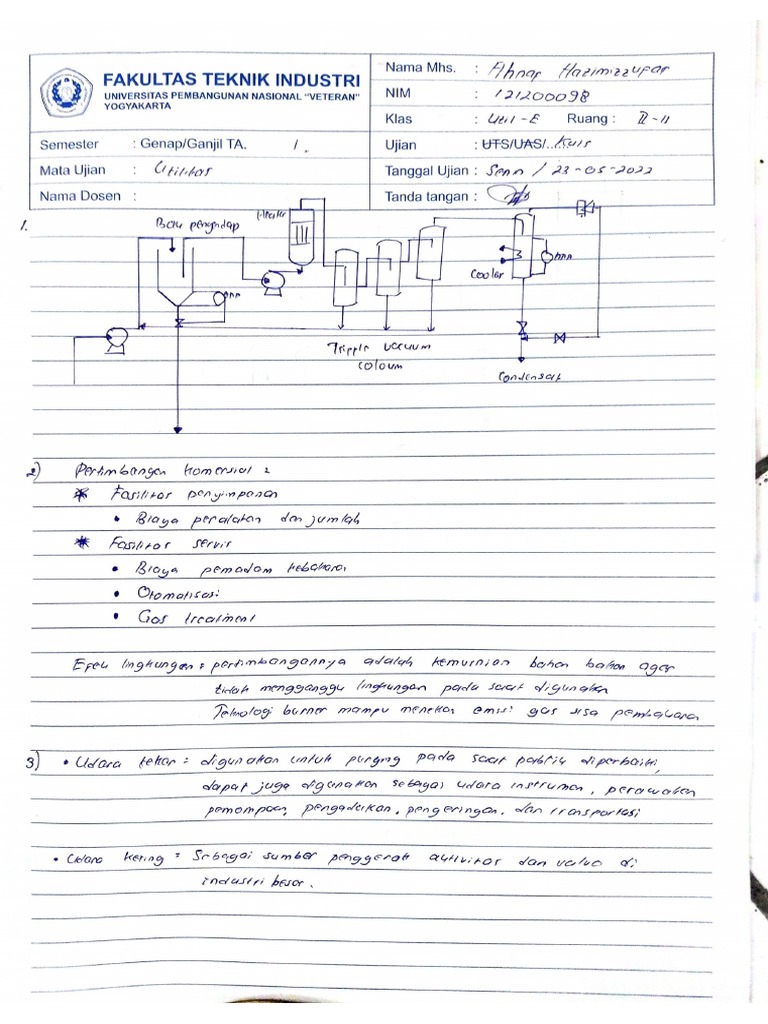 FAKULTAS TEKNIK INDUSTRI
UNIVERSITAS PEMBANGUNAN NASIONAL "VETERAN"
YOGYAKARTA
Nama Mhs. : Ahnaf Hazimizzufar
NIM : 121200098
Klas : Util-E Ruang : II-11
Semester : Genap/Ganjil TA. 1.
Ujian : UTS/UAS/..Kuis
Mata Ujian : Utilitas
Tanggal Ujian : Senin / 23-05-2022
Nama Dosen :
Tanda tangan :
1.
Bak pengendap
Heater
Cooler
Tripple vacuum
coloum
Condensat
2) Pertimbangan komersial :
* Fasilitas penyimpanan
• Biaya peralatan dan jumlah
* Fasilitas servis
• Biaya pemadam kebakaran
• Otomatisasi
• Gas treatment
Efek lingkungan : pertimbangannya adalah kemurnian bahan bakan agar
tidak mengganggu lingkungan pada saat digunakan
Teknologi burner mampu menekan emisi gas sisa pembakaran
3) • Udara tekan : digunakan untuk purging pada saat pabrik diperbaiki,
dapat juga digunakan sebagai udara instrumen, perawatan
pemompaan, pengadukan, pengeringan, dan transportasi
• Udara kering : Sebagai sumber penggerak aktivitas dan valve di
industri besar.